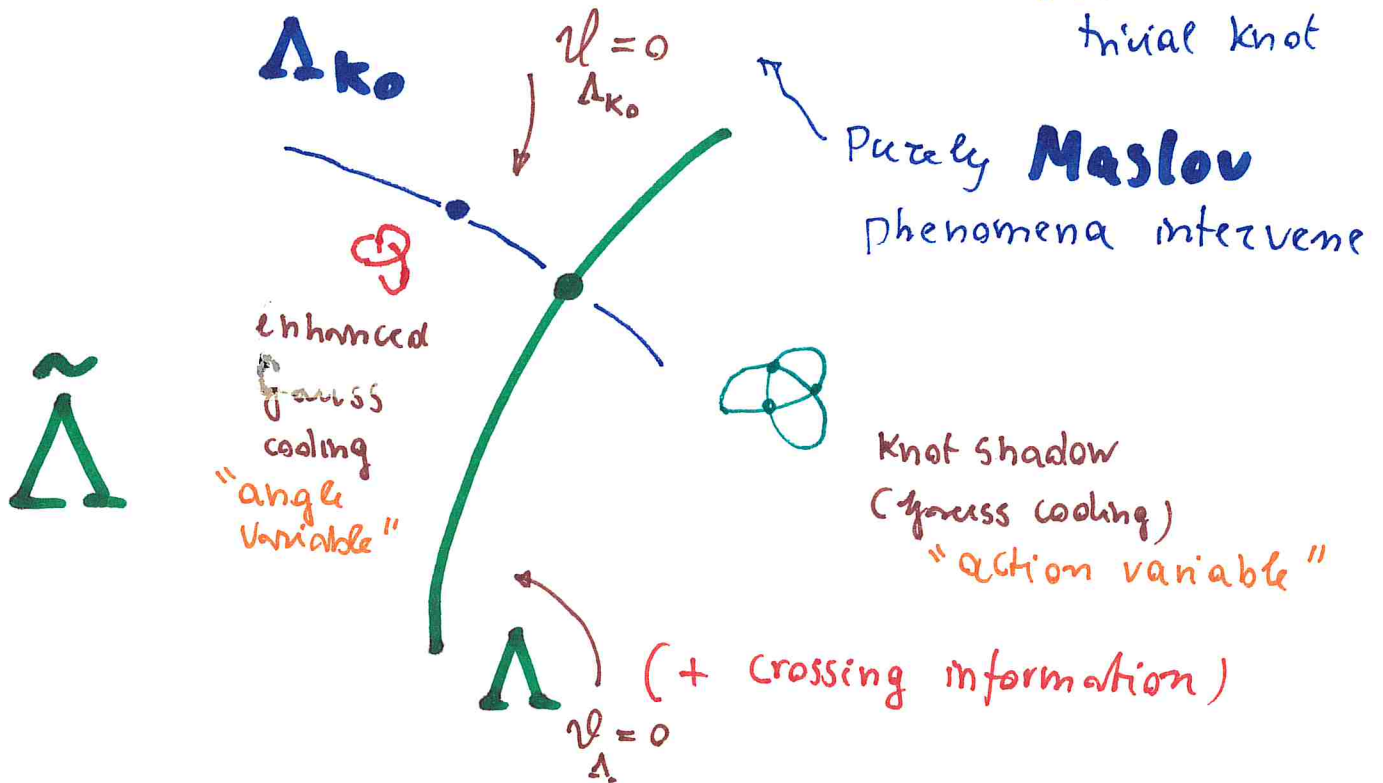 trivial knot
Λ_K₀
ϑ = 0
Λ_K₀
Purely Maslov
phenomena intervene
enhanced
Gauss
coding
"angle
variable"
Λ̃
knot shadow
(Gauss coding)
"action variable"
Λ (+ crossing information)
ϑ = 0
Λ